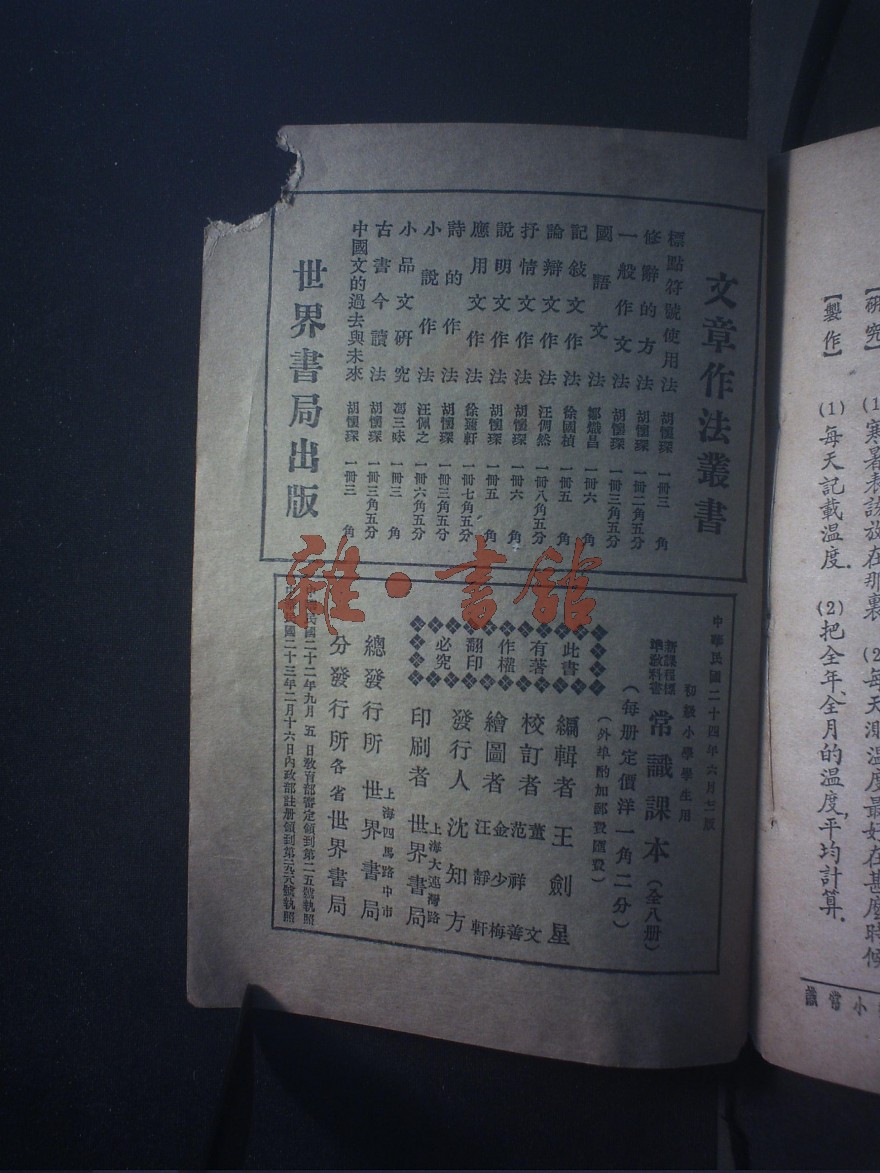 【研究】
【製作】 (1)每天記載溫度. (2)把全年、全月的溫度,平均計算.
文章作法叢書
標點符號使用法 胡懷琛 一冊三角
修辭的方法 胡懷琛 一冊二角五分
一般作文法 胡懷琛 一冊三角五分
國語文法 鄒熾昌 一冊六角
記敍文作法 徐國楨 一冊五角
論辯文作法 汪倜然 一冊八角五分
抒情文作法 胡懷琛 一冊六角
說明文作法 胡懷琛 一冊五角
應用文作法 徐 軒 一冊七角五分
詩的作法 胡懷琛 一冊三角五分
小說作法 汪佩之 一冊六角五分
小品文研究 馮三昧 一冊三角
古書今讀法 胡懷琛 一冊三角五分
中國文的過去與未來 胡懷琛 一冊三角
世界書局出版
雜·書館
中華民國二十四年六月三版
初級小學學生用
新課程標準教科書 常識課本(全八册)
(每册定價洋一角二分)
(外埠酌加郵費匯費)
此書有著作權翻印必究
編輯者 王劍星
校訂者 董文 范祥善
繪圖者 金少梅 汪靜軒
發行人 沈知方
印刷者 上海大連灣路 世界書局
總發行所 上海四馬路中市 世界書局
分發行所 各省世界書局
民國二十二年九月五日教育部審定領到第二五號執照
民國二十三年二月十六日內政部註册領到第 號執照